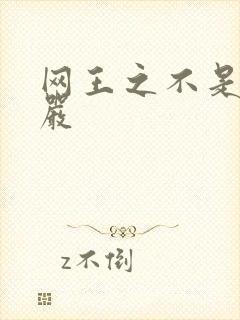 网王之不是
嚴
z不倒